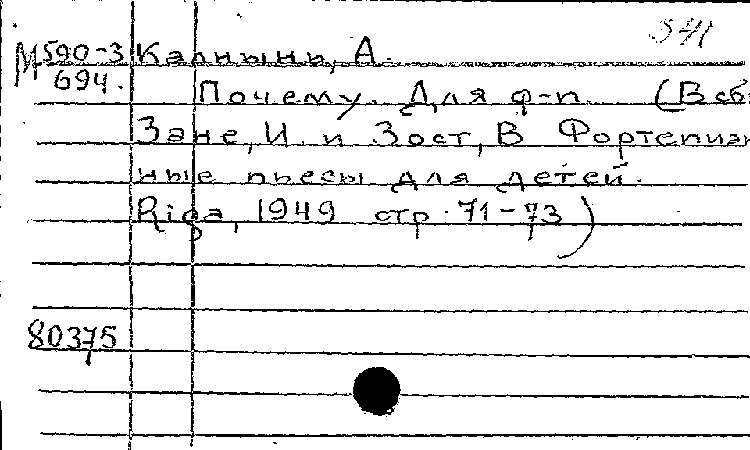 541
М590-3 Калнынь, А.
694.
Почему. Для ф-п. (В сб:
Зане, И. и Зост, В Фортепиан
ные пьесы для детей.
Riga, 1949 стр. 71-73)
80375